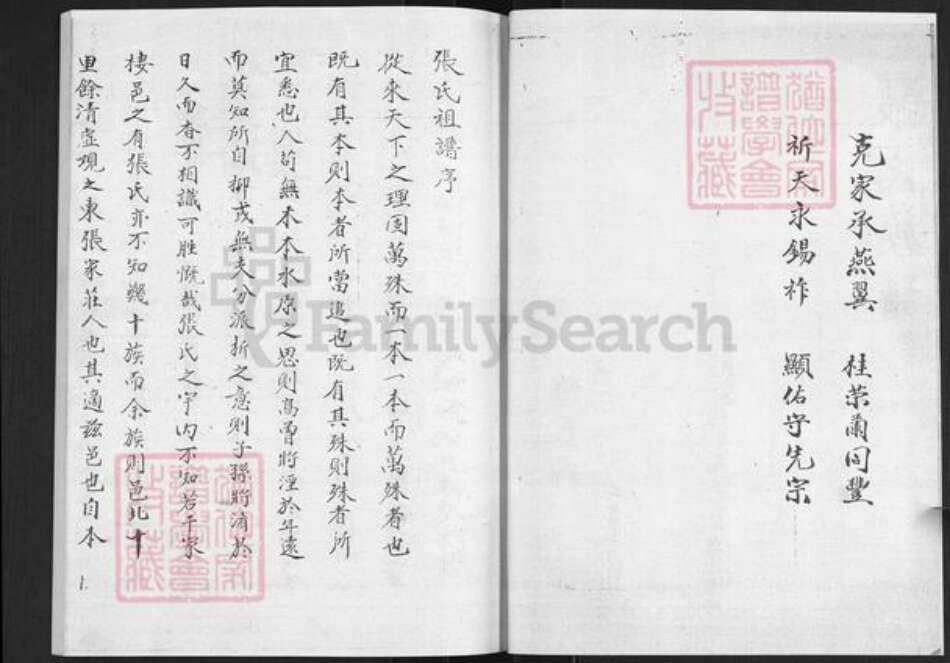 克家承燕翼 桂荣蘭同豐
祈天永錫祚 顯佑守先宗
張氏祖譜序
從來天下之理固萬殊而一本一本而萬殊者也
既有其本則本者所當追也既有其殊則殊者所
宜悉也人苟無木本水原之思則高曾將湮於年遠
而莫知所自抑或無夫分派折之意則子孫將淆於
日久而杳不相識可勝慨哉張氏之宇内不知若干家
棲邑之有張氏亦不知幾十族而余族則邑北十
里餘清虛觀之東張家莊人也其適兹邑也自本
1.
譜學會
收藏
FamilySearch